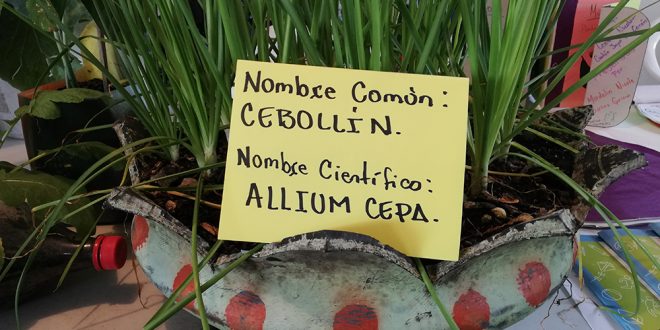 Nombre Común:
CEBOLLÍN.
Nombre Científico:
ALLIUM CEPA.